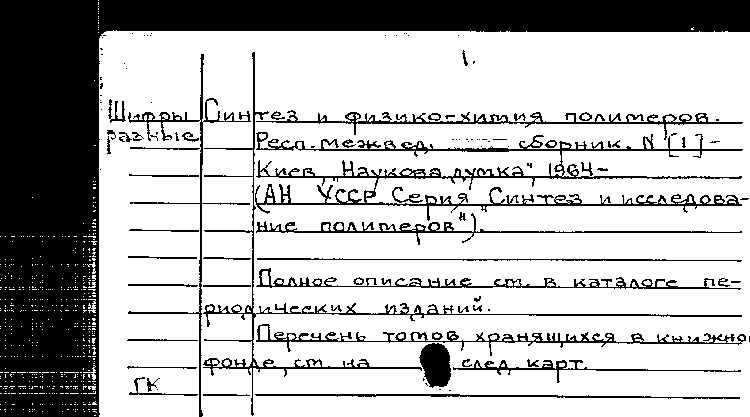 1.
Шифры Синтез и физико-химия полимеров.
разные Респ. межвед. сборник. N [1] -
Киев, "Наукова думка", 1964-
(АН УССР. Серия "Синтез и исследова-
ние полимеров").
Полное описание см. в каталоге пе-
риодических изданий.
Перечень томов, хранящихся в книжно
фонде, см. на след. карт.
ГК